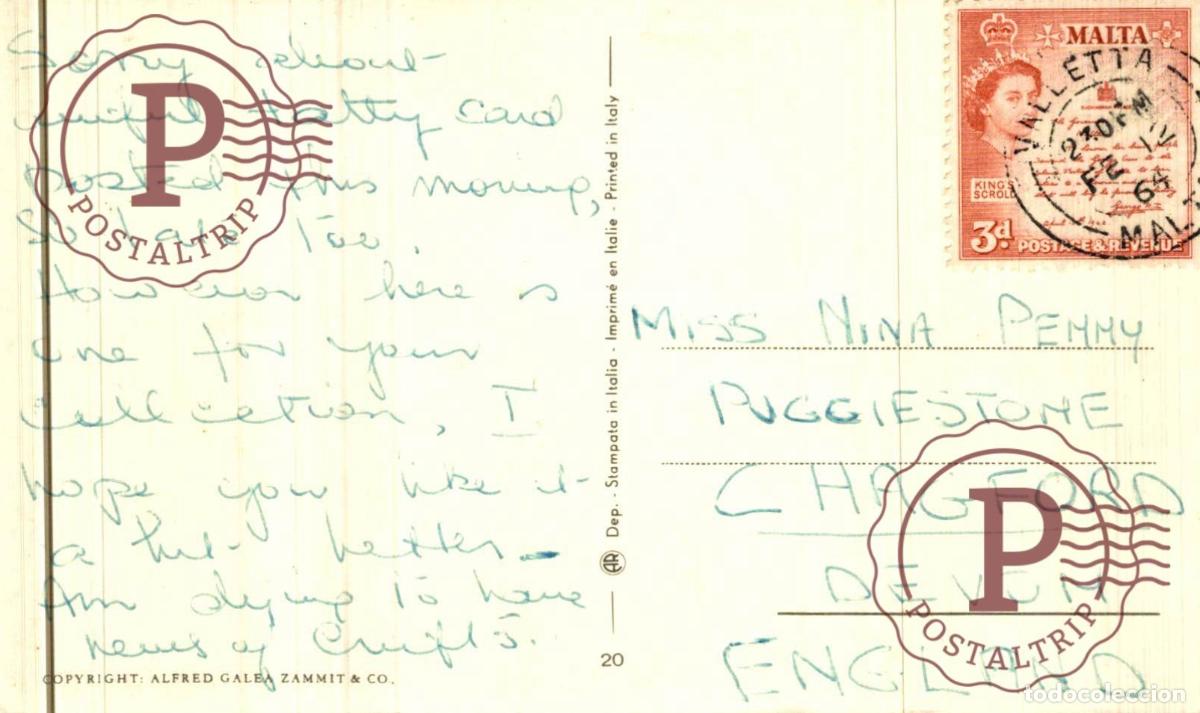 Sorry about
tatty card
posted this morning,
However here is
one for your
collection, I
hope you like it
a bit better
Am dying to have
news of Crufts.
COPYRIGHT: ALFRED GALEA ZAMMIT & CO.
20
Dep. - Stampata in Italia - Imprimé en Italie - Printed in Italy
MALTA
KING'S
SCROLL
3d
POSTAGE & REVENUE
VALLETTA
2 30 PM
FE 12
64
MALTA
MISS NINA PEMMY
PUGGIESTONE
CHAGFORD
DEVON
ENGLAND
P
POSTALTRIP
P
POSTALTRIP
todocoleccion